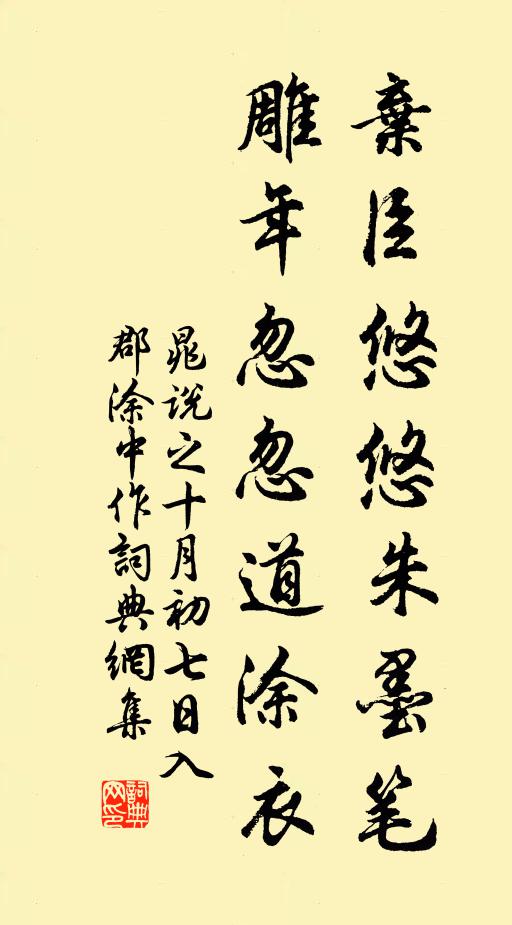 棄臣悠悠朱墨笔
雕年忽忽道涂衣
晁說之十月初七日入
郡涂中作詞典網集
詞典
网印